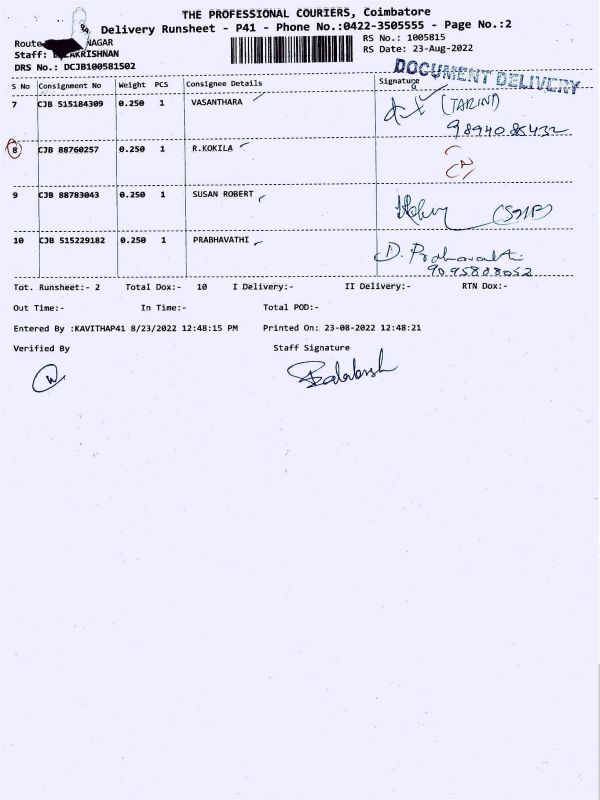 THE PROFESSIONAL COURIERS, Coimbatore
Delivery Runsheet - P41 - Phone No.:0422-3505555 - Page No.:2
Route NAGAR RS No.: 1005815
Staff: AKRISHNAN RS Date: 23-Aug-2022
DRS No.: DCJB100581502
DOCUMENT DELIVERY
S No Consignment No Weight PCS Consignee Details Signature
7 CJB 515184309 0.250 1 VASANTHARA (TARINI)
9894086432
8 CJB 88760257 0.250 1 R.KOKILA
9 CJB 88783043 0.250 1 SUSAN ROBERT
10 CJB 515229182 0.250 1 PRABHAVATHI D. Prabavathi
9095808052
Tot. Runsheet:- 2 Total Dox:- 10 I Delivery:- II Delivery:- RTN Dox:-
Out Time:- In Time:- Total POD:-
Entered By :KAVITHAP41 8/23/2022 12:48:15 PM Printed On: 23-08-2022 12:48:21
Verified By Staff Signature